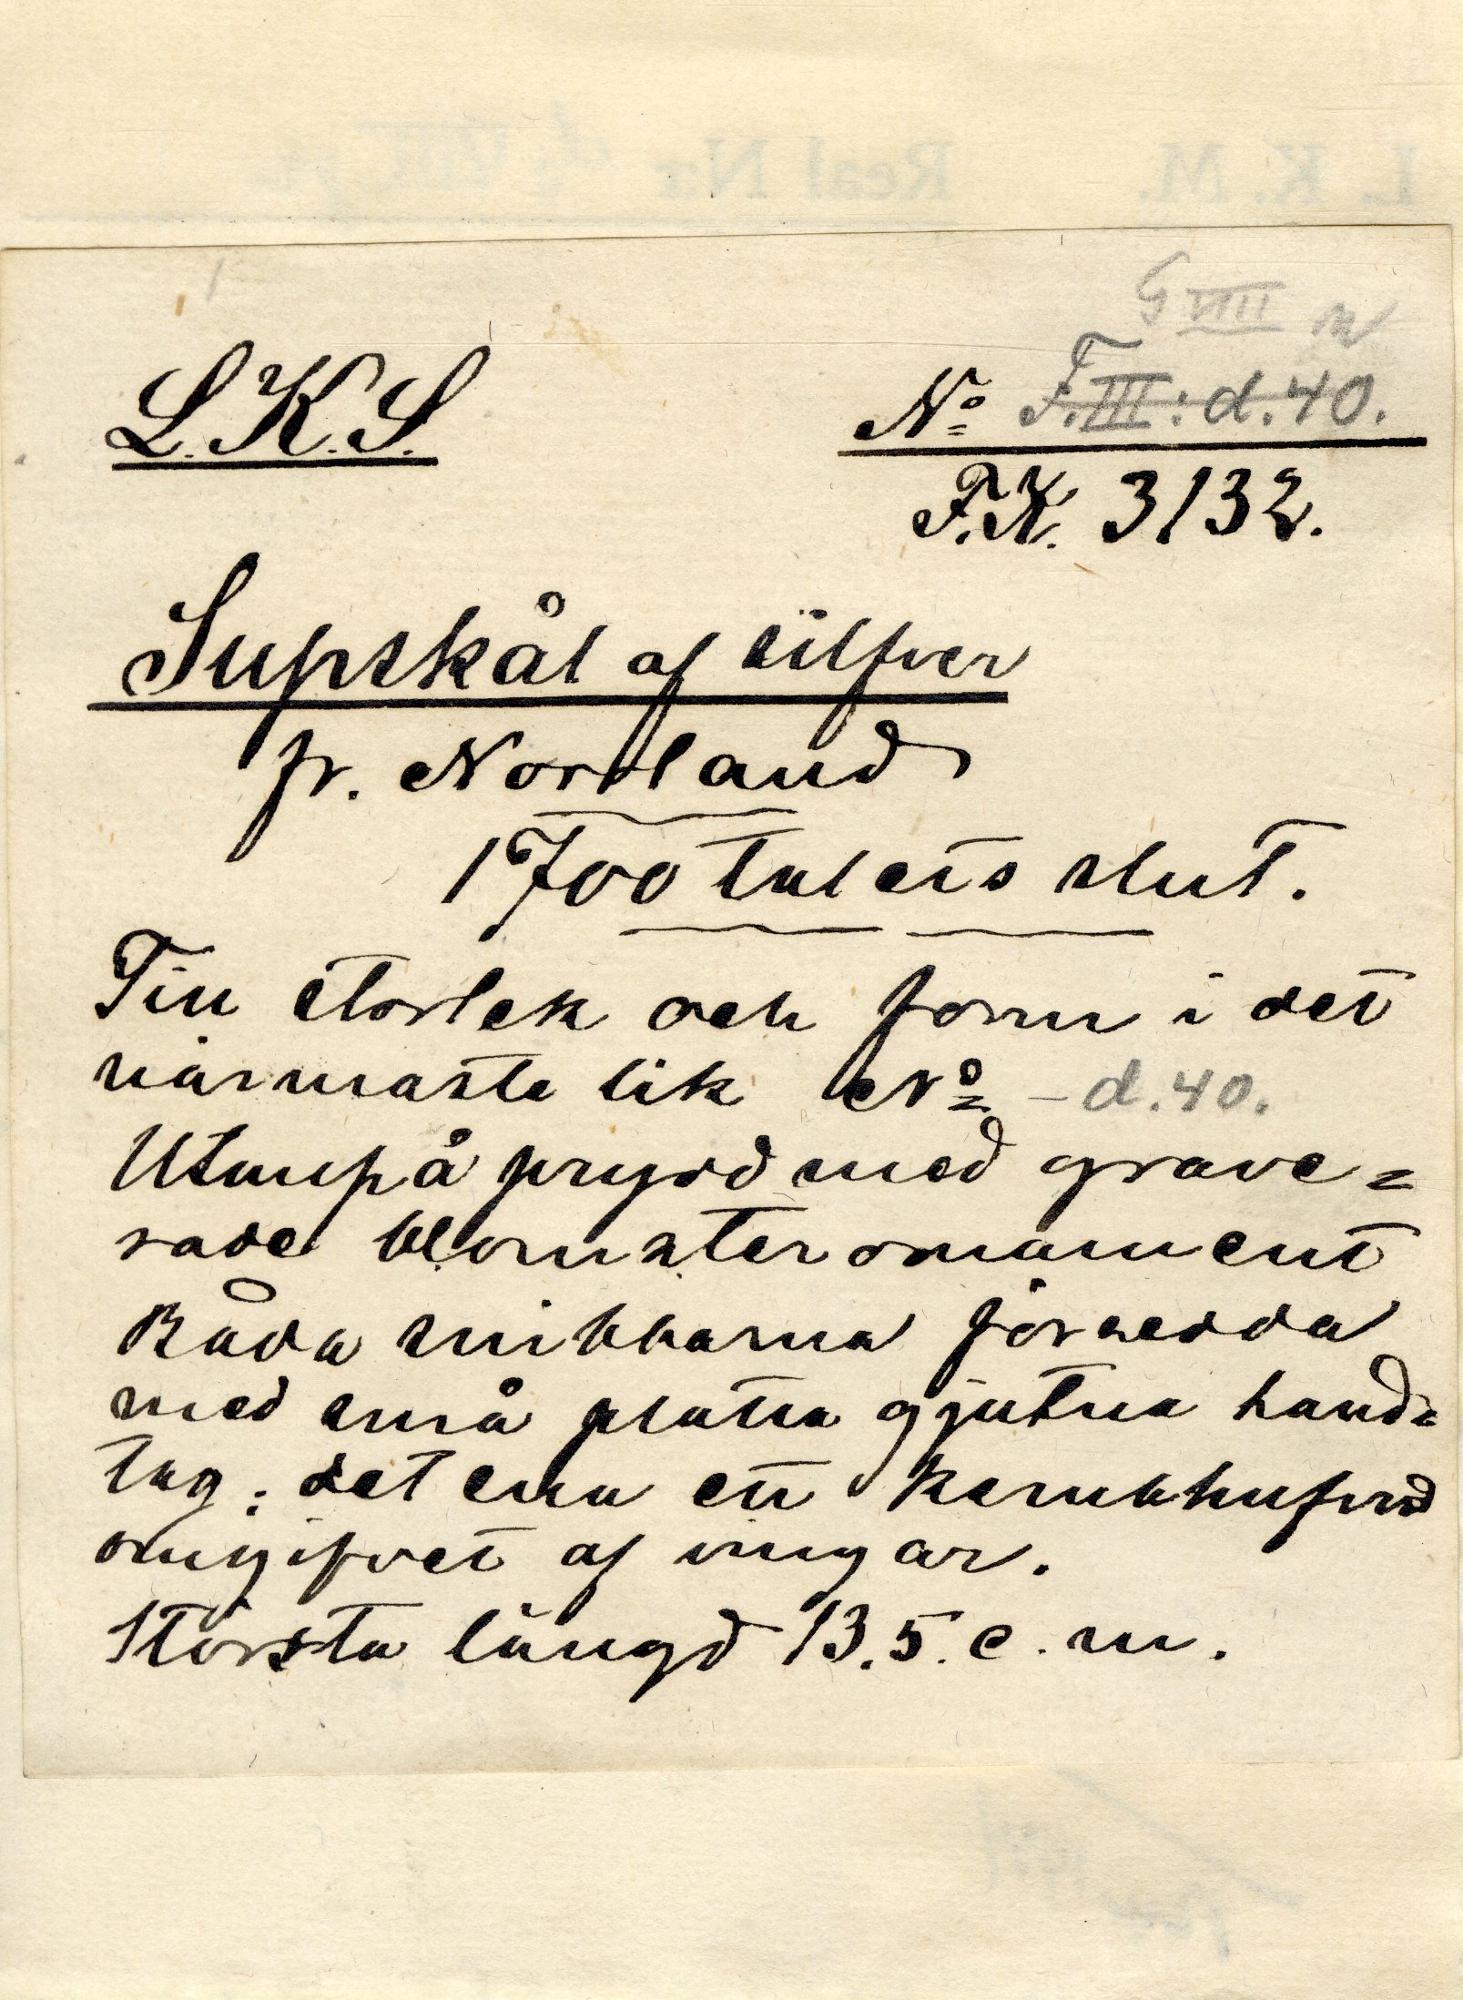 G VIII n
L.K.S.
No F.III: d. 40.
F.K. 3132.
Supskål af silfver
fr. Norrland
1700 talets slut.
Till storlek och form i det
närmaste lik No - d. 40.
Utanpå prydd med grave=
rade blomsterornament
Båda snibbarna försedda
med små platta gjutna hand=
tag; det ena ett kerubhufvud
omgifvet af vingar.
Största längd 13.5. c. m.